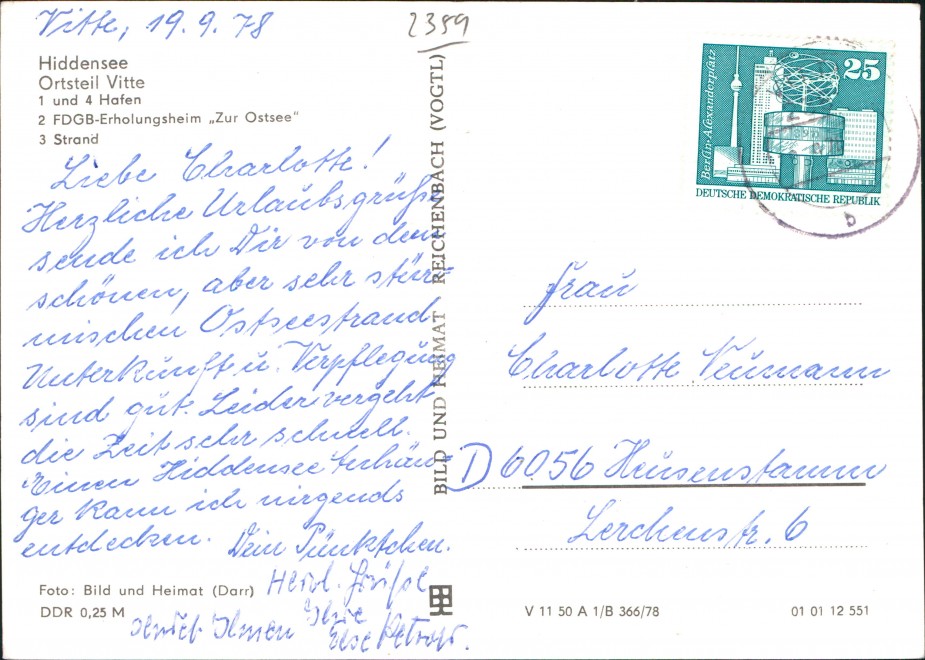 Vitte, 19.9.78
2359
Hiddensee
Ortsteil Vitte
1 und 4 Hafen
2 FDGB-Erholungsheim „Zur Ostsee“
3 Strand
Liebe Charlotte!
Herzliche Urlaubsgrüße
sende ich Dir von dem
schönen, aber sehr stür-
mischen Ostseestrand.
Unterkunft u. Verpflegung
sind gut. Leider vergeht
die Zeit sehr schnell.
Einen Hiddensee Anhän-
ger kann ich nirgends
entdecken. Dein Pünktchen.
Herzl. Grüße
Ihre
Foto: Bild und Heimat (Darr)
DDR 0,25 M
BILD UND HEIMAT REICHENBACH (VOGTL)
Berlin-Alexanderplatz
25
DEUTSCHE DEMOKRATISCHE REPUBLIK
b
Frau
Charlotte Neumann
D 6056 Heusenstamm
Lerchenstr. 6
V 11 50 A 1/B 366/78
01 01 12 551